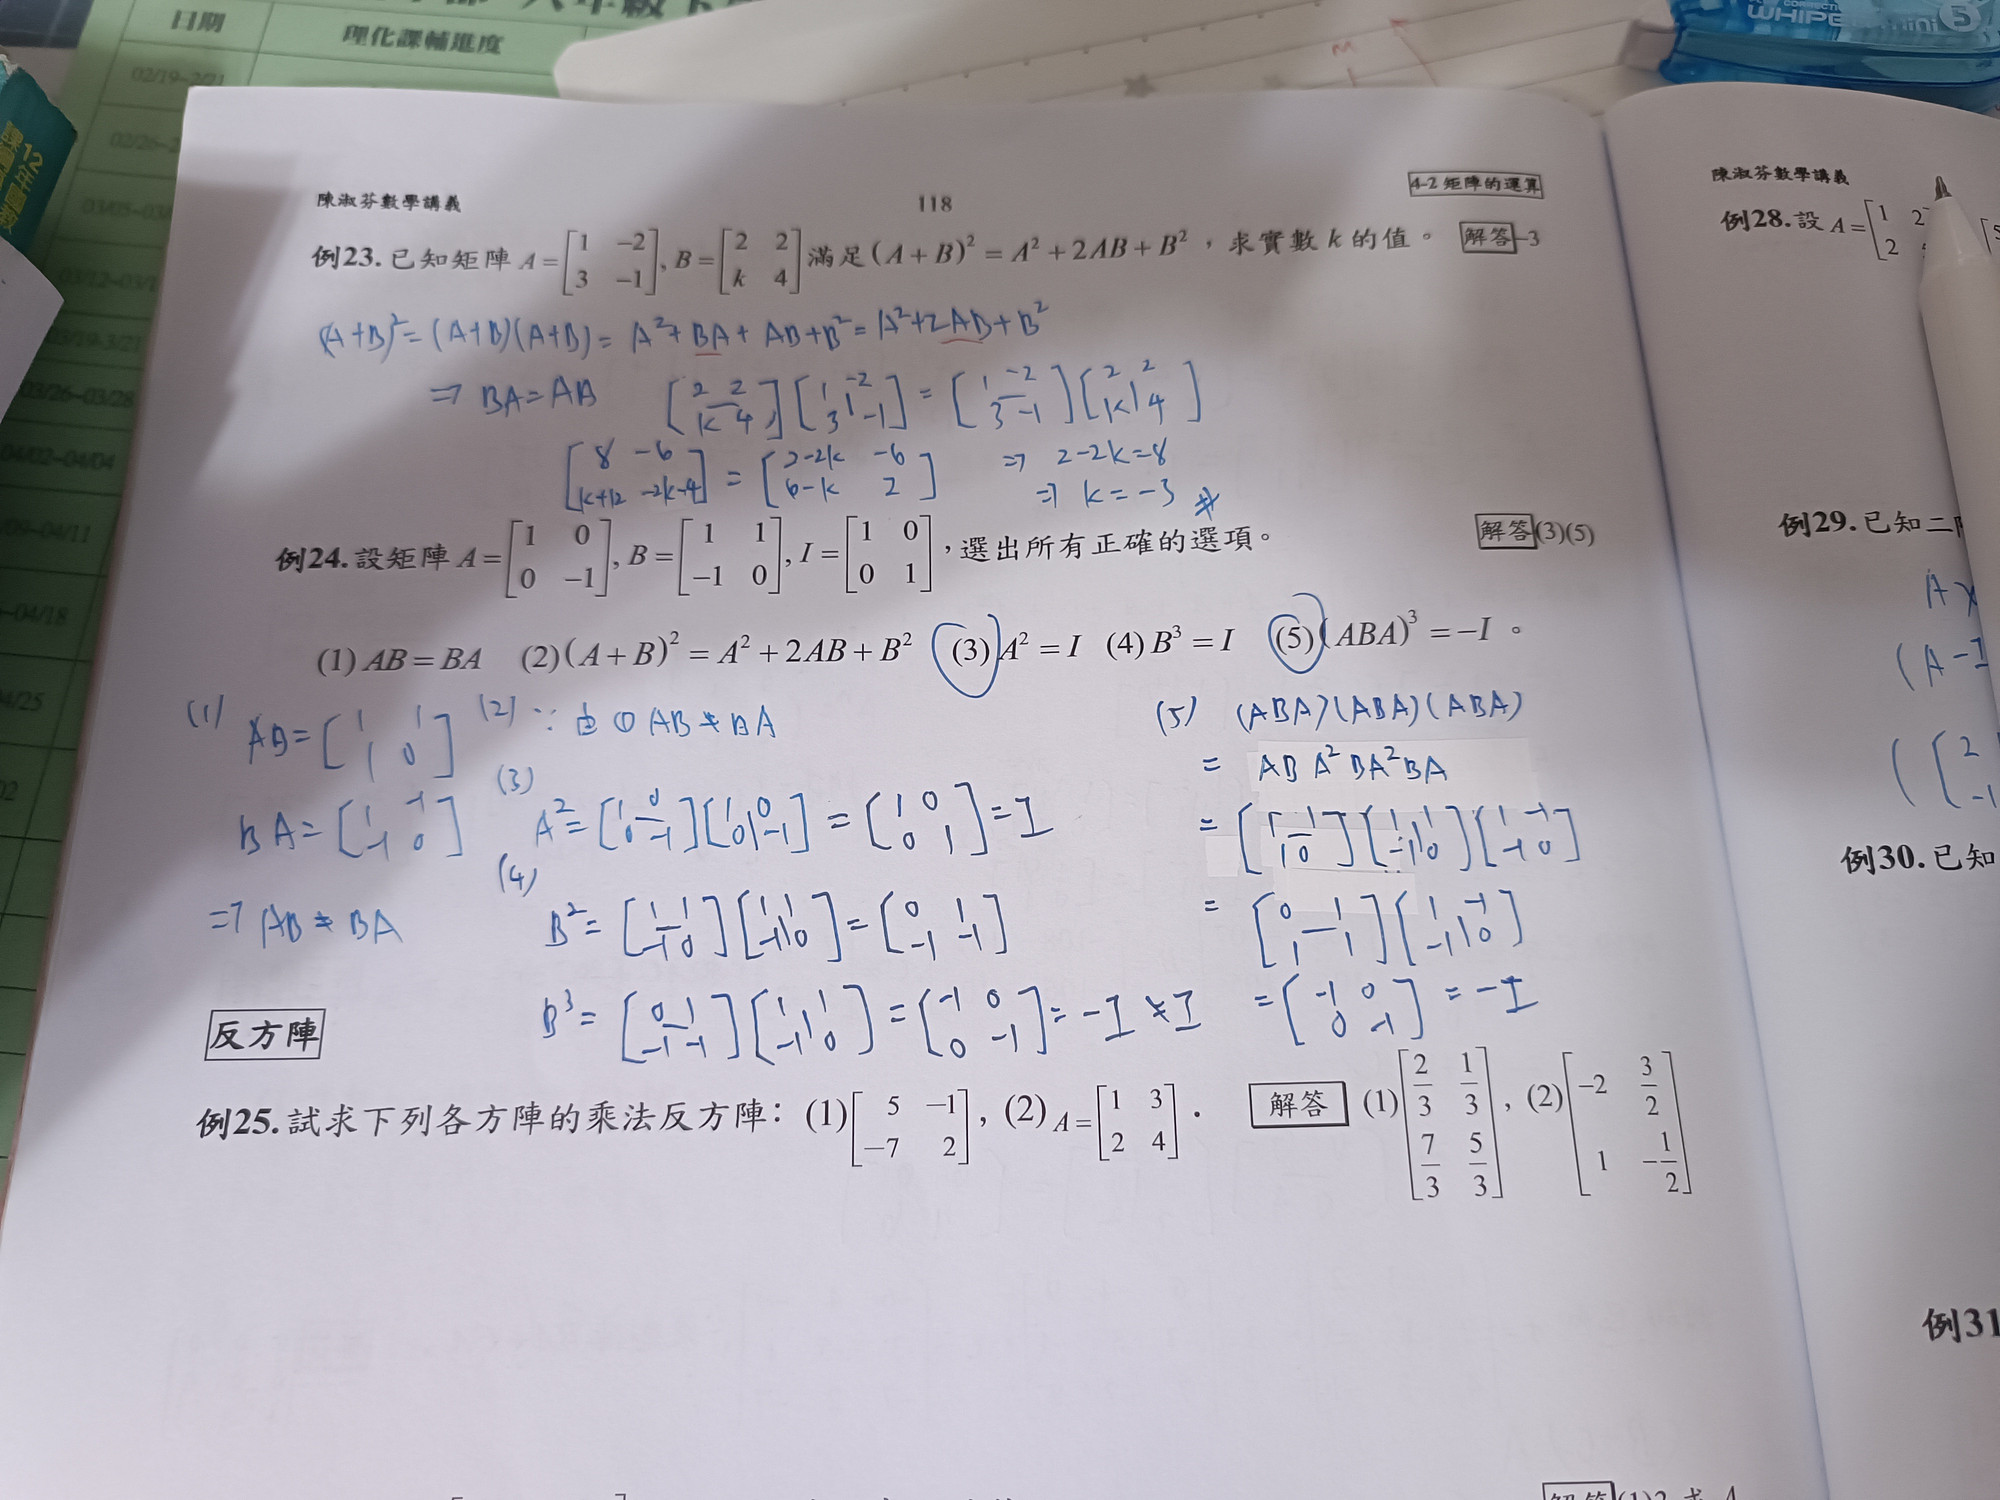 日期 理化課輔進度
02/19~2/21
WHIPER mini 5
陳淑芬數學講義 118 4-2 矩陣的運算
例23. 已知矩陣 A = [1 -2; 3 -1], B = [2 2; k 4] 滿足 (A+B)² = A² + 2AB + B²,求實數 k 的值。 解答 -3
(A+B)² = (A+B)(A+B) = A² + BA + AB + B² = A² + 2AB + B²
⇒ BA = AB [2 2; k 4][1 -2; 3 -1] = [1 -2; 3 -1][2 2; k 4]
[8 -6; k+12 -2k-4] = [2-2k -6; 6-k 2] ⇒ 2-2k=8
⇒ k = -3
例24. 設矩陣 A = [1 0; 0 -1], B = [1 1; -1 0], I = [1 0; 0 1],選出所有正確的選項。 解答 (3)(5)
(1) AB = BA (2) (A+B)² = A² + 2AB + B² (3) A² = I (4) B³ = I (5) (ABA)³ = -I 。
(1) AB = [1 1; 1 0]
BA = [1 -1; -1 0]
⇒ AB ≠ BA
(2) ∵ 由① AB ≠ BA
(3) A² = [1 0; 0 -1][1 0; 0 -1] = [1 0; 0 1] = I
(4) B² = [1 1; -1 0][1 1; -1 0] = [0 1; -1 -1]
B³ = [0 1; -1 -1][1 1; -1 0] = [-1 0; 0 -1] = -I ≠ I
(5) (ABA)(ABA)(ABA)
= ABA²BA²BA
= [1 1; 1 0][1 1; -1 0][1 -1; -1 0]
= [0 1; 1 1][1 -1; -1 0]
= [-1 0; 0 -1] = -I
反方陣
例25. 試求下列各方陣的乘法反方陣: (1) [5 -1; -7 2], (2) A = [1 3; 2 4]. 解答 (1) [2/3 1/3; 7/3 5/3], (2) [-2 3/2; 1 -1/2]
陳淑芬數學講義
例28. 設 A = [1 2; 2
例29. 已知二
(A-I
例30. 已知
例31